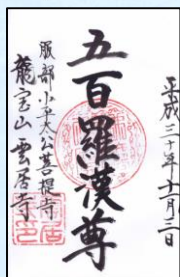 平成三十年十一月三日
五百羅漢尊
服部小平太公菩提寺
龍宝山 雲居寺